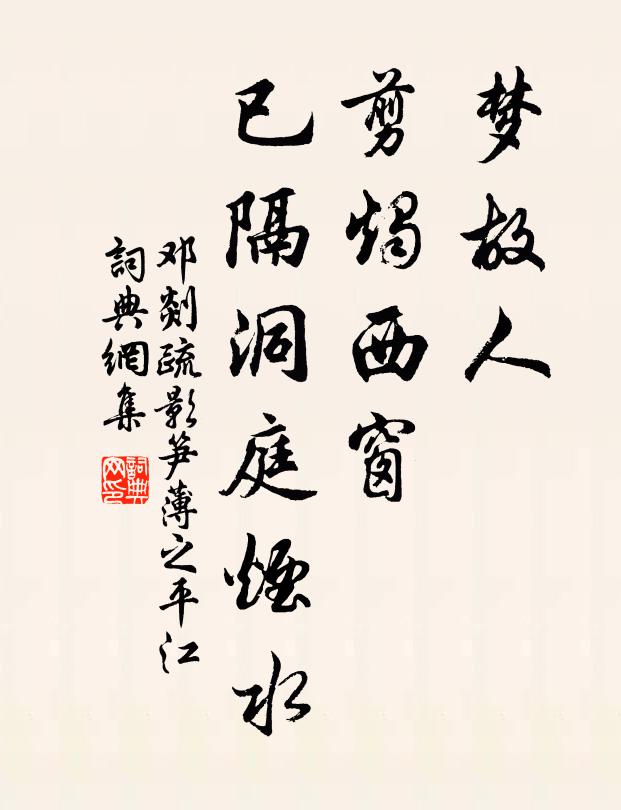 梦故人
剪烛西窗
已隔洞庭烟水
邓剡疏影笋薄之平江
词典網集
詞典网印